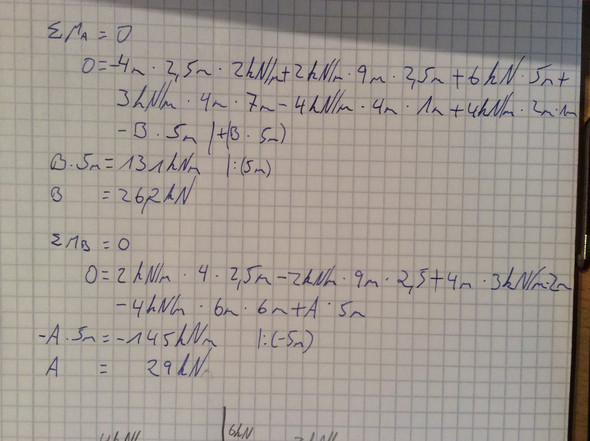 ΣM_A = 0
0=-4m · 2,5m · 2kN/m+2kN/m · 9m · 2,5m + 6kN · 5m +
3kN/m · 4m · 7m - 4kN/m · 4m · 1m + 4kN/m · 2m·1m
- B · 5m |+(B · 5m)
B·5m = 131kNm |:(5m)
B = 26,2kN
ΣM_B = 0
0=2kN/m · 4 · 2,5m-2kN/m · 9m · 2,5+4m · 3kN/m·2m
-4kN/m · 6m · 6m+A · 5m
-A·5m=-145kNm |:(-5m)
A = 29kN
6kN